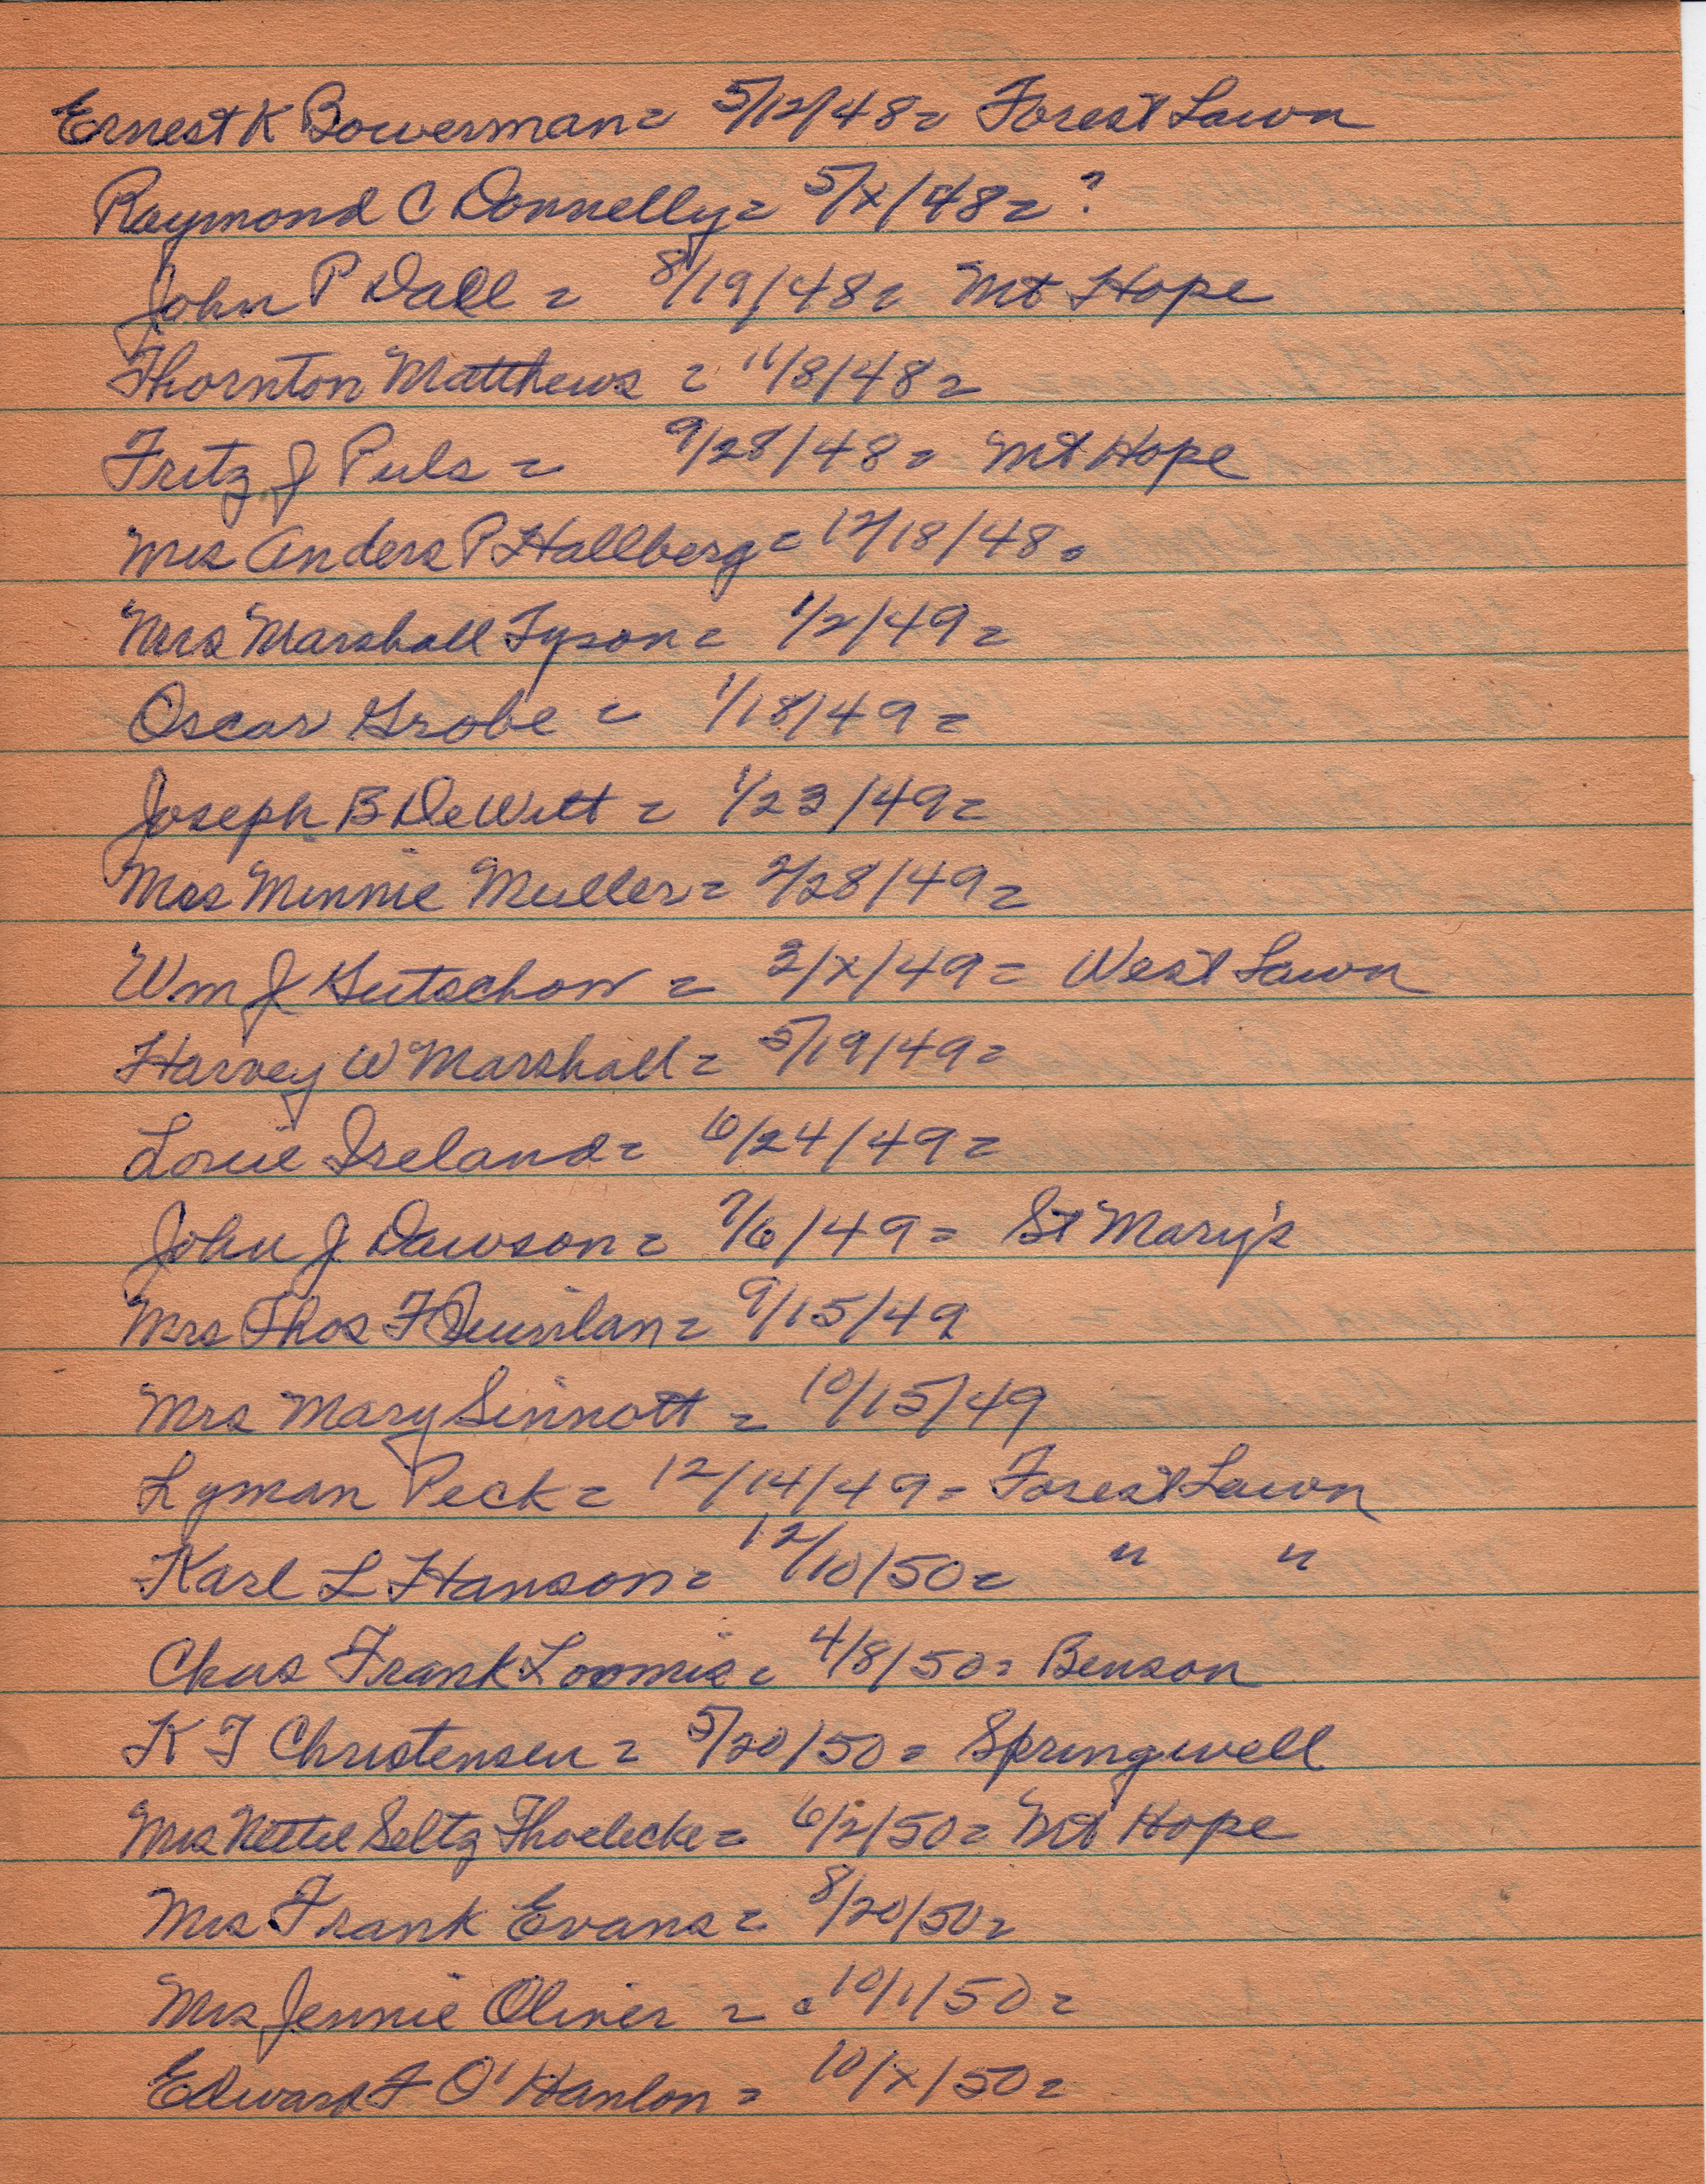 Ernest K Bowerman = 5/12/48 = Forest Lawn
Raymond C Donnelly = 5/x/48 = ?
John P Dall = 8/19/48 = Mt Hope
Thornton Matthews = 11/8/48 =
Fritz J Puls = 9/28/48 = Mt Hope
Mrs Anders P Hallberg = 12/18/48 =
Mrs Marshall Tyson = 1/2/49 =
Oscar Grobe = 1/18/49 =
Joseph B DeWitt = 1/23/49 =
Mrs Minnie Muller = 2/28/49 =
Wm J Gutschow = 3/x/49 = West Lawn
Harvey W Marshall = 5/19/49 =
Louie Ireland = 6/24/49 =
John J Dawson = 7/6/49 = St Mary's
Mrs Thos F Quinlan = 9/15/49
Mrs Mary Sinnott = 10/15/49
Lyman Peck = 12/14/49 = Forest Lawn
Karl L Hanson = 12/10/50 = " "
Chas Frank Loomis = 4/8/50 = Benson
K T Christensen = 5/20/50 = Springwell
Mrs Nettie Seltz Thoelecke = 6/2/50 = Mt Hope
Mrs Frank Evans = 8/20/50 =
Mrs Jennie Oliver = 10/1/50 =
Edward F O'Hanlon = 10/x/50 =